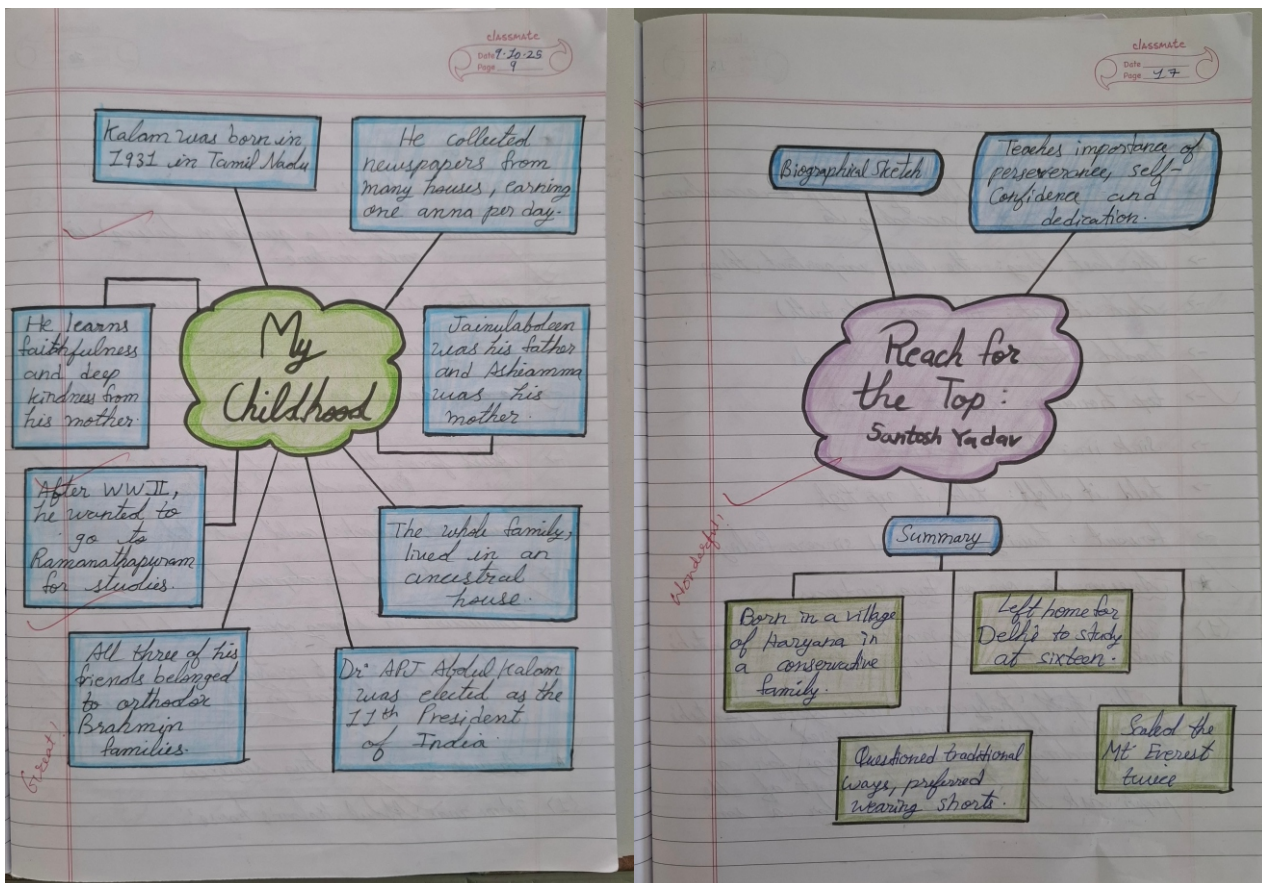 classmate
Date 9.10.25
Page 9
Kalam was born in
1931 in Tamil Nadu
He collected
newspapers from
many houses, earning
one anna per day.
My
Childhood
He learns
faithfulness
and deep
kindness from
his mother.
Jainulabdeen
was his father
and Ashiamma
was his
mother.
After WW II,
he wanted to
go to
Ramanathapuram
for studies.
The whole family,
lived in an
ancestral
house.
All three of his
friends belonged
to orthodox
Brahmin
families.
Dr. APJ Abdul Kalam
was elected as the
11th President
of India
Great!
classmate
Date
Page 17
Biographical Sketch
Teaches importance of
perseverance, self-
Confidence and
dedication.
Reach for
the Top:
Santosh Yadav
Wonderful!
Summary
Born in a village
of Haryana in
a conservative
family.
Left home for
Delhi to study
at sixteen.
Questioned traditional
ways, preferred
wearing shorts.
Scaled the
Mt Everest
twice